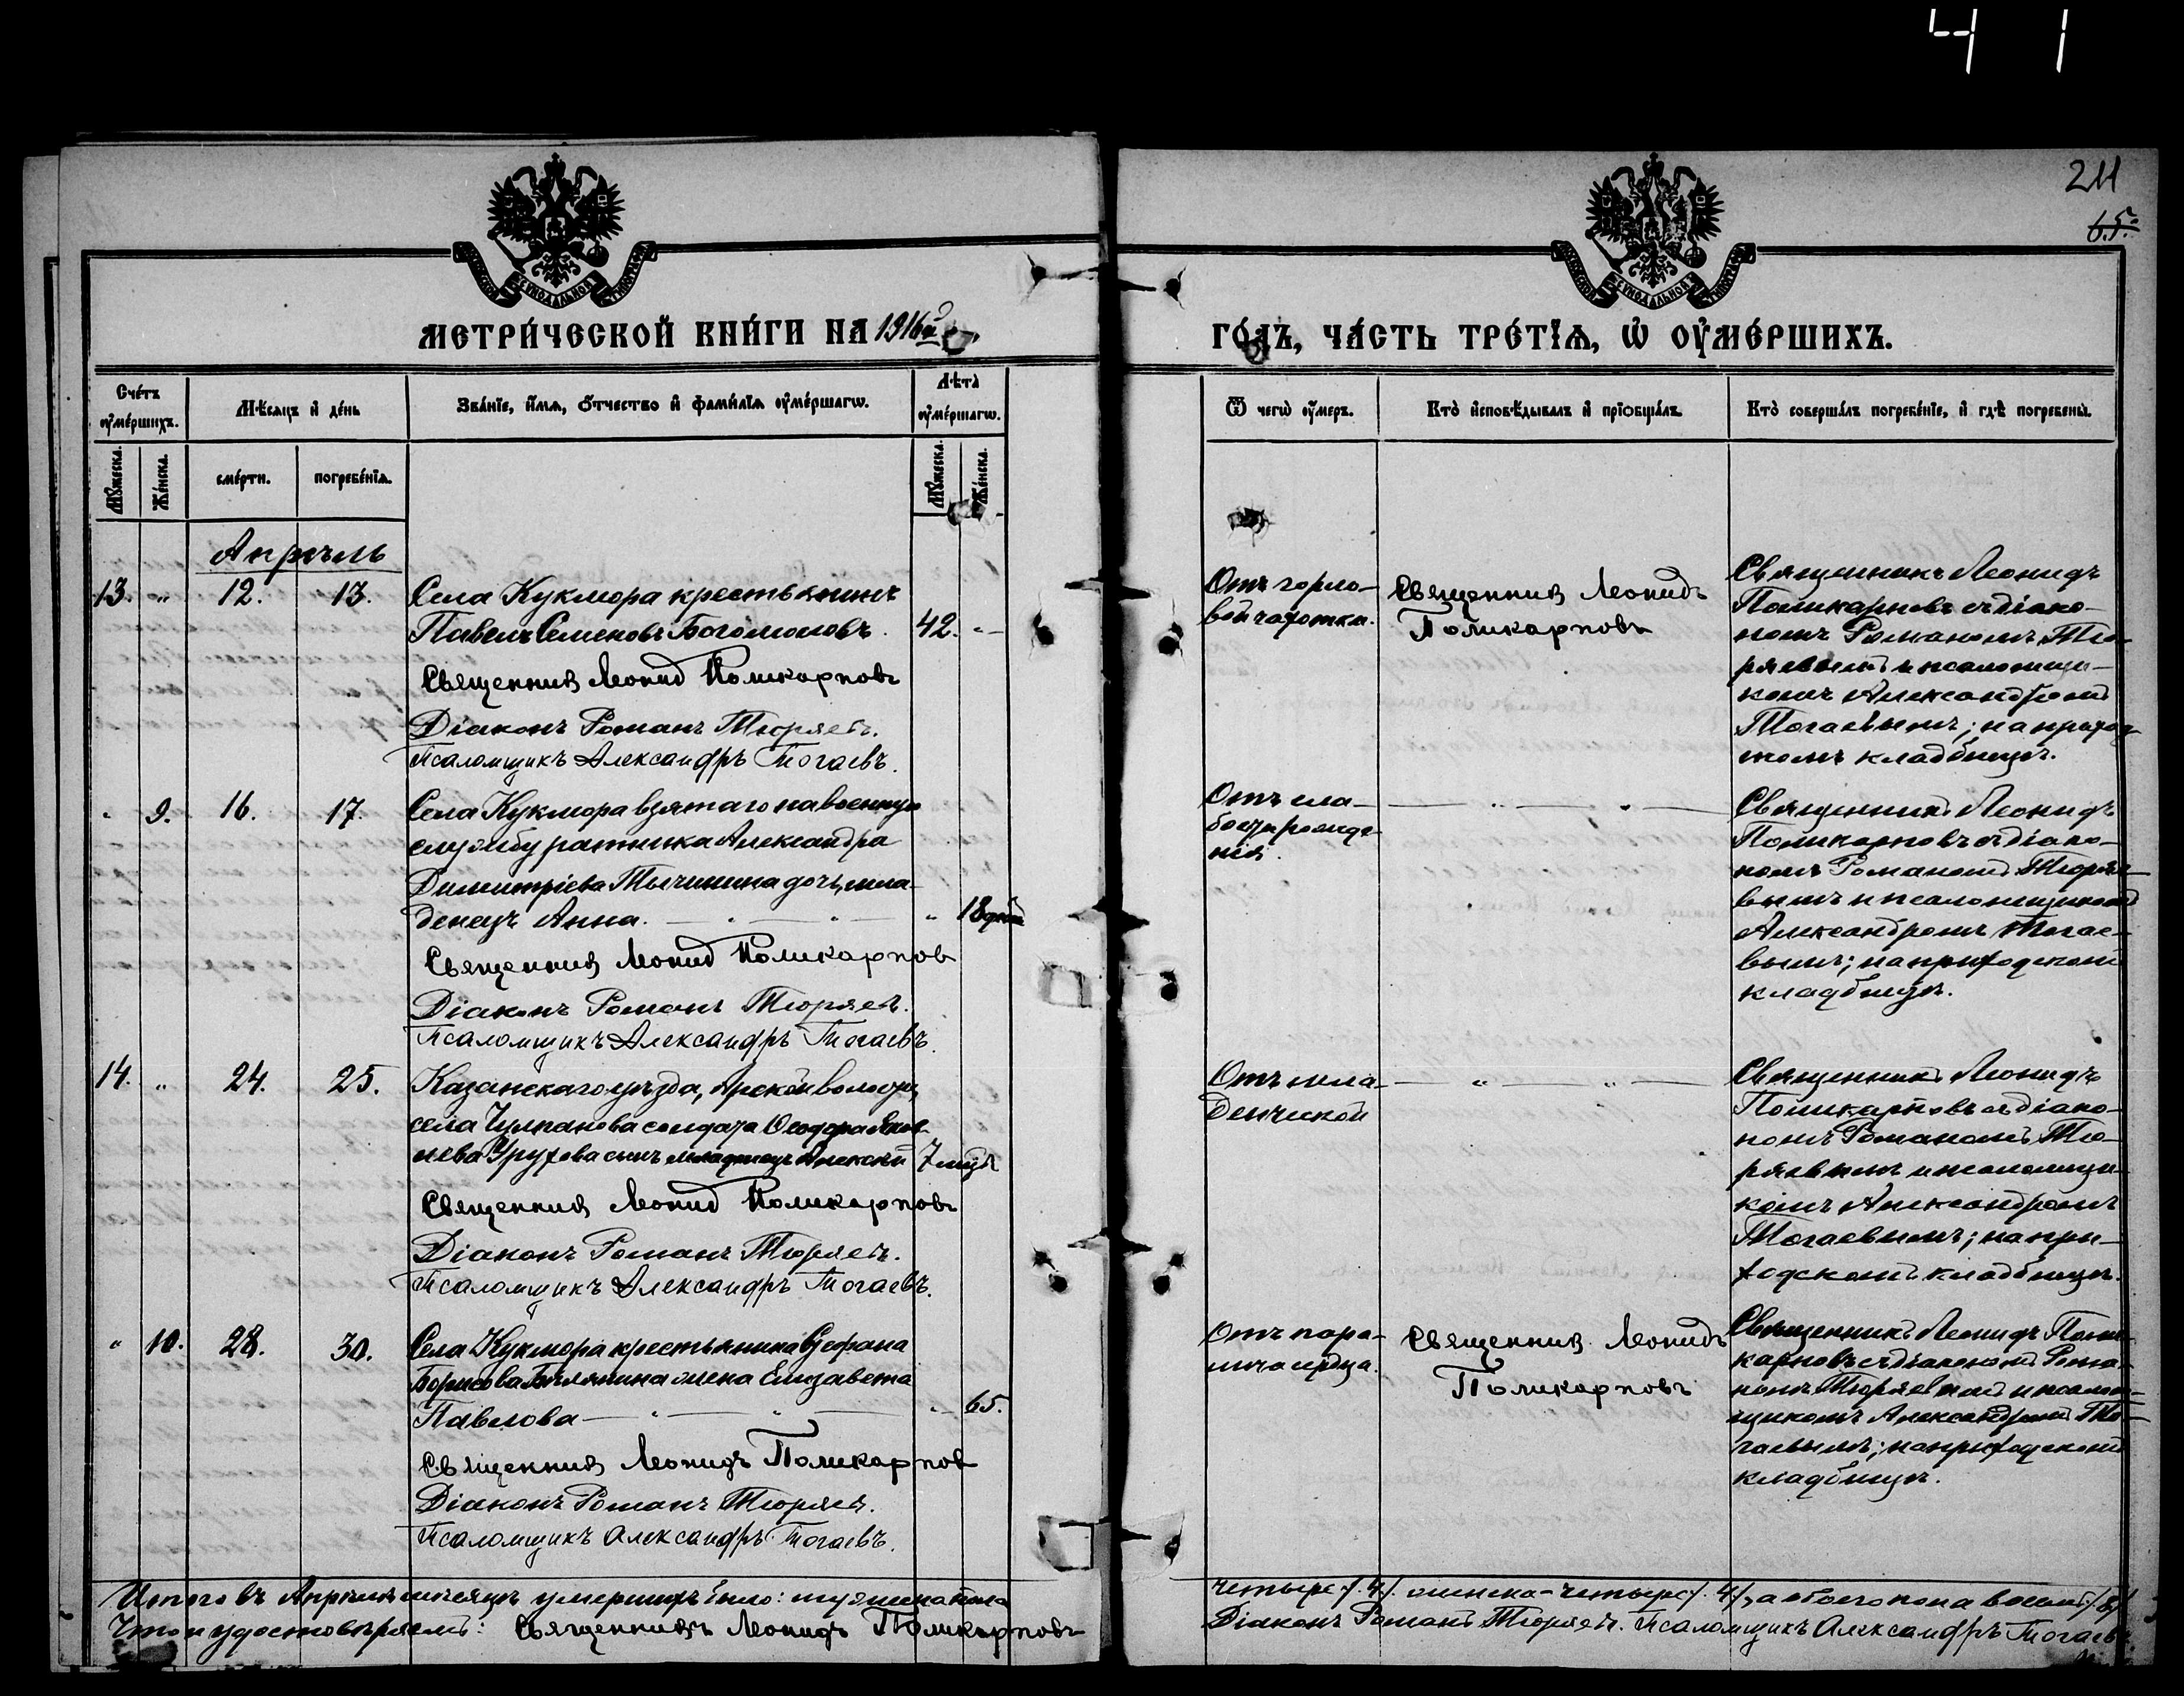 41
211
65.
МЕТРИ́ЧЕСКОЙ КНИ́ГИ НА 1916й
ГО́ДЪ, ЧА́СТЬ ТРЕ́ТІѦ, Ѡ҆ ОУ҆МЕ́РШИХЪ.
Сче́тъ оу҆ме́ршихъ.
Мѣ́сяцъ и҆ де́нь
Зва́нїе, и҆́мѧ, ѻ҆́тчество и҆ фами́лїѧ оу҆ме́ршагѡ.
Лѣ́та оу҆ме́ршагѡ.
Ѿ чегѡ̀ оу҆́меръ.
Кто̀ и҆сповѣ́дывалъ и҆ прїѡбща́лъ.
Кто̀ соверша́лъ погребе́нїе, и҆ гдѣ̀ погребены̀.
Мꙋ́жеска.
Же́нска.
сме́рти.
погребе́нїѧ.
Мꙋ́жеска.
Же́нска.
Апрѣль
13. " 12. 13.
Села Кукмора крестьянинъ
Павелъ Семеновъ Богомоловъ. 42. "
Священникъ Леонид Поликарповъ
Діаконъ Романъ Тюряевъ.
Псаломщикъ Александръ Тогаевъ.
Отъ горло-
вой чахотки.
Священникъ Леонидъ
Поликарповъ
Священникъ Леонидъ
Поликарповъ съ діако-
номъ Романомъ Тю-
ряевымъ и псаломщи-
комъ Александромъ
Тогаевымъ; на приход-
скомъ кладбищѣ.
" 9. 16. 17.
Села Кукмора взятаго на военную
службу ратника Александра
Димитріева Тычинина дочь, мла-
денецъ Анна. " 18 дней
Священникъ Леонид Поликарпов
Діаконъ Романъ Тюряевъ.
Псаломщикъ Александръ Тогаевъ.
Отъ сла-
бости рожде-
нія.
Священникъ Леонидъ
Поликарповъ съ діако-
номъ Романомъ Тюряе-
вымъ и псаломщикомъ
Александромъ Тогае-
вымъ; на приходскомъ
кладбищѣ.
14. " 24. 25.
Казанскаго уѣзда, Арской волости,
села Чулпанова солдата Ѳеодора Яков-
лева сынъ младенецъ Алексей 7 мѣс.
Священникъ Леонид Поликарповъ
Діаконъ Романъ Тюряевъ.
Псаломщикъ Александръ Тогаевъ.
Отъ мла-
денческой
Священникъ Леонидъ
Поликарповъ съ діако-
номъ Романомъ Тю-
ряевымъ и псаломщи-
комъ Александромъ
Тогаевымъ; на при-
ходскомъ кладбищѣ.
" 10. 28. 30.
Села Кукмора крестьянина Стефана
Борисова жена Елизавета
Павлова " 65.
Священникъ Леонидъ Поликарпов
Діаконъ Романъ Тюряевъ.
Псаломщикъ Александръ Тогаевъ.
Отъ пара-
лича сердца.
Священникъ Леонидъ
Поликарповъ
Священникъ Леонидъ Поли-
карповъ съ діакономъ Рома-
номъ Тюряевымъ и псалом-
щикомъ Александромъ То-
гаевымъ; на приходскомъ
кладбищѣ.
Итого въ Апрѣлѣ мѣсяцѣ умершихъ было: мужеска пола
четыре /4/ женска – четыре /4/, а обоего пола восемь /8/
Что и удостовѣряемъ: Священникъ Леонидъ Поликарповъ
Діаконъ Романъ Тюряевъ. Псаломщикъ Александръ Тогаевъ.